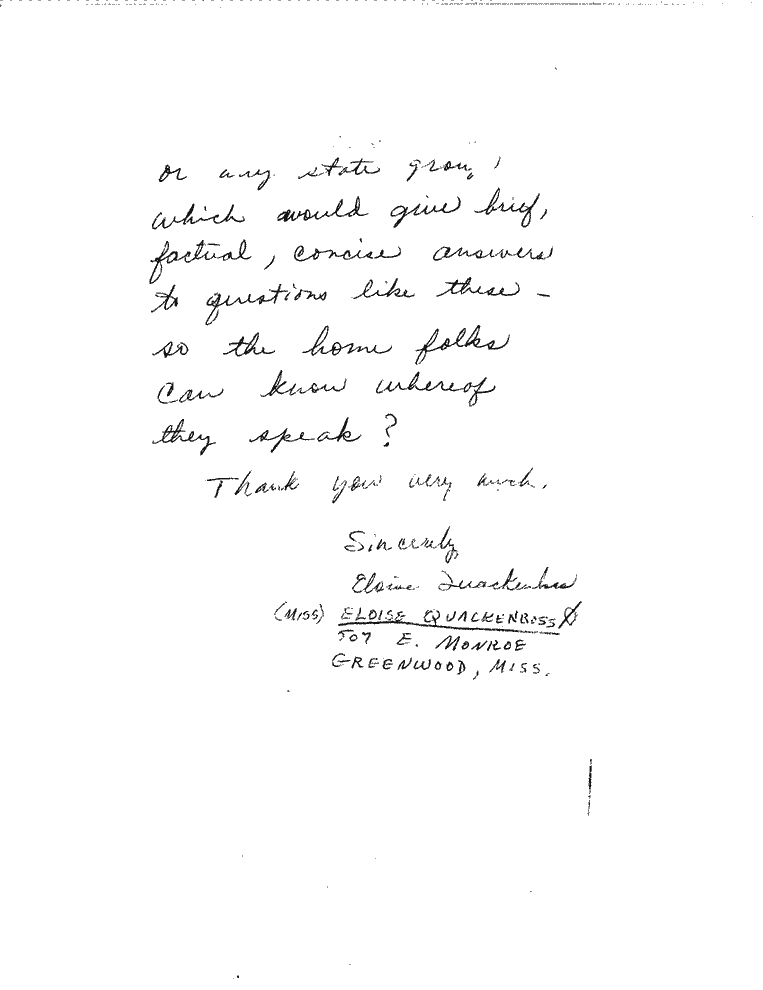 or any state group
which would give brief,
factual, concise answers
to questions like these –
so the home folks
can know whereof
they speak?
Thank you very much.
Sincerely,
Eloise Quackenboss
(MISS) ELOISE QUACKENBOSS
507 E. MONROE
GREENWOOD, MISS.